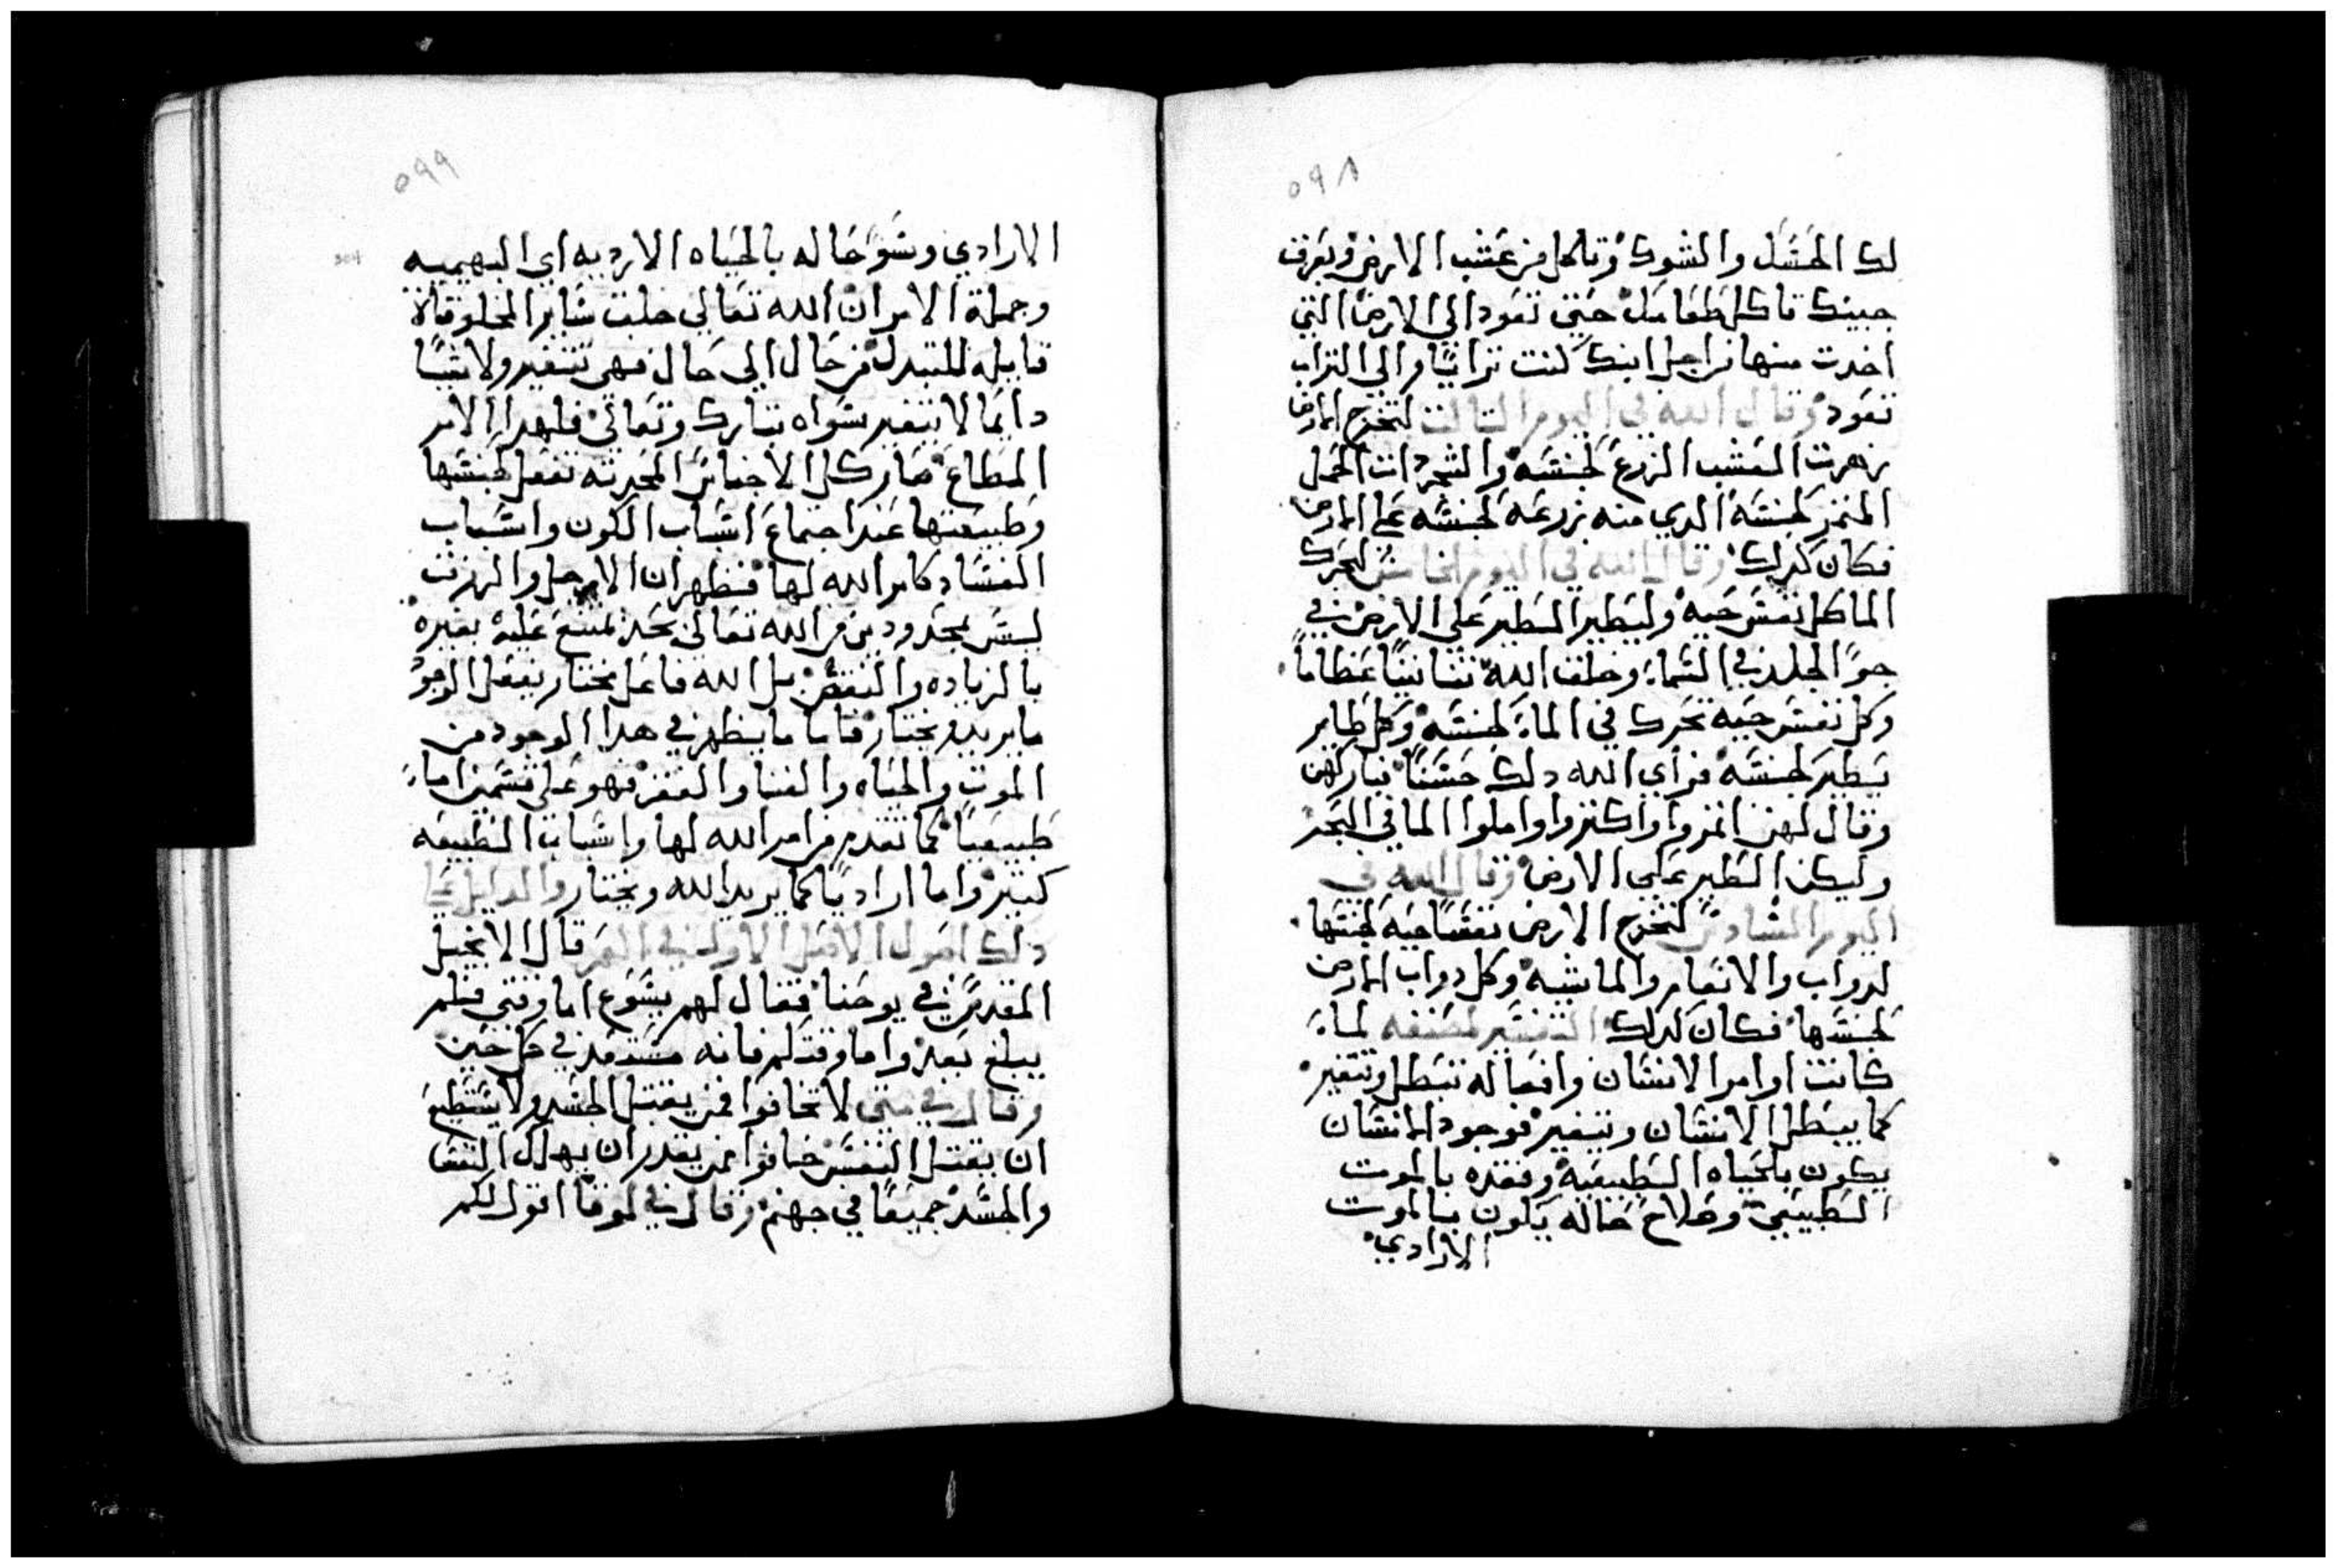 ٥٩٨
لك الحسك والشوك وتاكل من عشب الارض وبعرق
جبينك تاكل طعامك حتي تعود الي الارض التي
اخدت منها من اجل انك كنت ترابًا والي التراب
تعود وقال الله في اليوم التالت لتخرج الارض
زهرت العشب الزرع لجنسه والشجر دات الحمل
المتمر لجنسه الدي منه زرعه لجنسه علي الارض
فكان كدلك وقال الله في اليوم الخامس لتحرك
الما كل نفس حيه وليطير الطير علي الارض في
جو الجلد في السما وخلق الله تنانينًا عظامًا
وكل نفس حيه تحرك في الما لجنسه وكل طاير
يطير لجنسه فراي الله دلك حسنًا فباركهن
وقال لهن انموا واكتروا واملوا الما في البحر
وليكن الطير علي الارض وقال الله في
اليوم السادس لتخرج الارض نفسًا حيه لجنسها
لدواب والانعام والماشيه وكل دواب الارض
لجنسها فكان كدلك التفسير لمصنفه لما
كانت اوامر الانسان وافعاله تبطل وتتغير
كما يبطل الانسان ويتغير فوجود الانسان
يكون بالحياه الطبيعيه وفقده بالموت
الطبيعي وصلاح حاله يكون بالموت
الارادي
٥٩٩
الارادي وسوا حاله بالحياه الارديه اي البهيميه
وجملة الامر ان الله تعالي خلق ساير المخلوقاة
قابله للتبدل من حال الي حال فهي تتغير ولا شيًا
دايمًا لا يتغير سواه تبارك وتعالي فلهدا الامر
المطاع صار كل الاجناس المحدته تفعل لجنسها
وطبيعتها عند اجتماع اسباب الكون واسباب
الفساد كامر الله لها فظهر ان الاجل والرزق
ليس بمحدودين من الله تعالي بحد يمتنع عليه بغيره
بالزياده والنقص بل الله فاعل مختار يفعل الوجو
ما يريد ويختار فاما ما يظهر في هدا الوجود من
الموت والحياه والغنا والفقر فهو علي قسمين اما
طبيعيًا كما تقدم من امر الله لها واسباب الطبيعه
كتير واما اراديًا كما يريد الله ويختار والدليل علي
دلك اصول الاصل الاول في العمر قال الانجيل
المقدس في يوحنا فقال لهم يسوع اما وقتي فلم
يبلغ بعد واما وقتكم فانه مستعد في كل حين
وقال في متي لا تخافوا ممن يقتل الجسد ولا يستطيع
ان يقتل النفس خافوا ممن يقدر ان يهلك النفس
والجسد جميعًا في جهنم وقال في لوقا اقول لكم